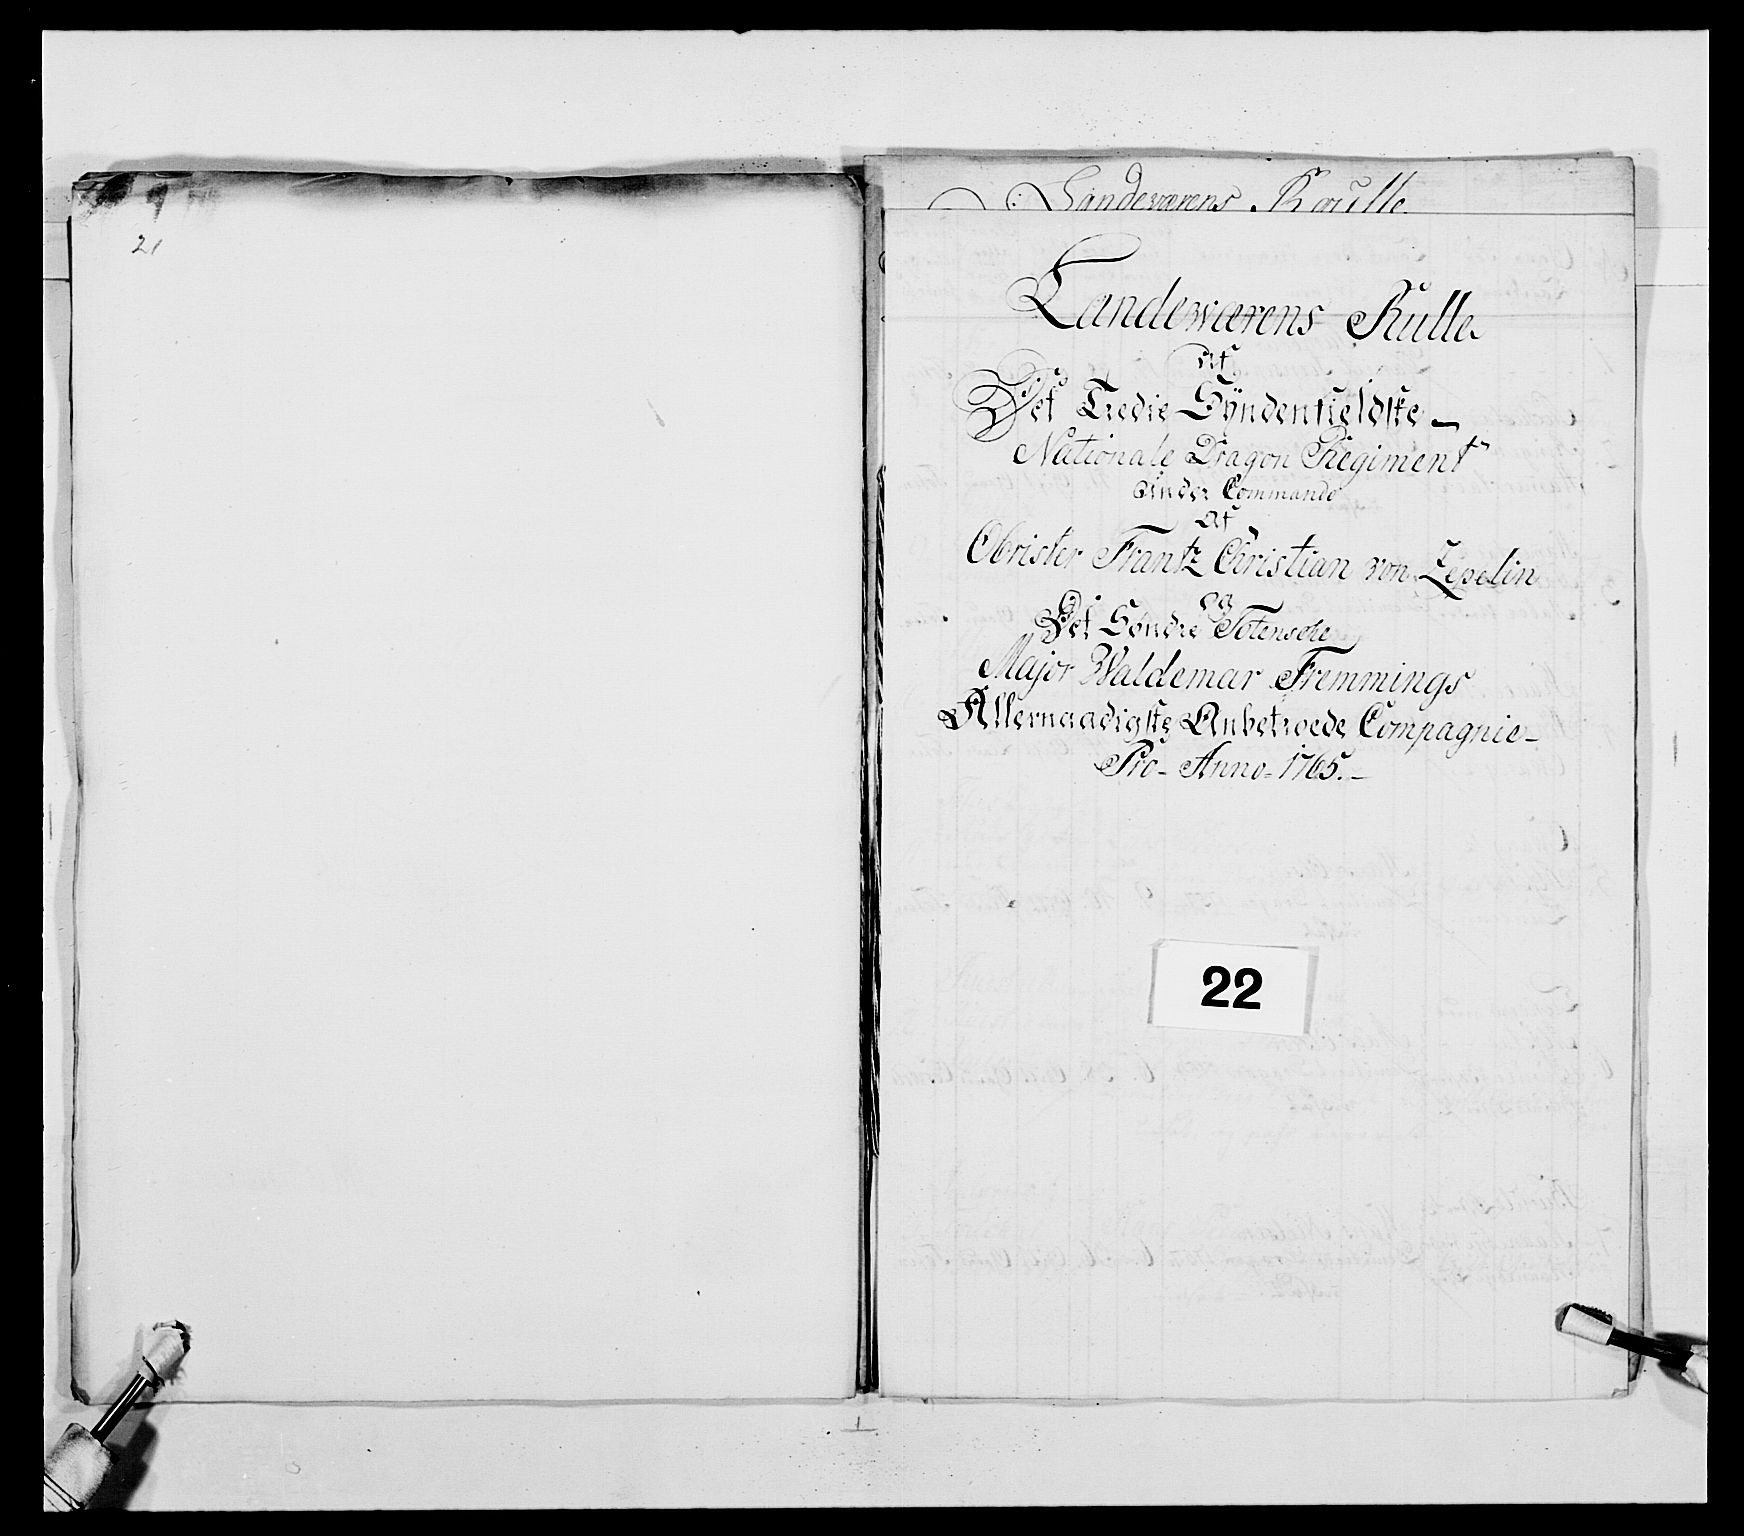 21
Landeværens Roulle
Landewærens Rulle
Af
Det Tredie Syndenfieldske
Nationale Dragon Regiment
under Commando
Af
Obrister Frantz Christian von Zepelin
og
Det Søndre Totensche
Major Waldemar Fremmings
Allernaadigste Anbetroede Compagnie
Pro Anno 1765.
22